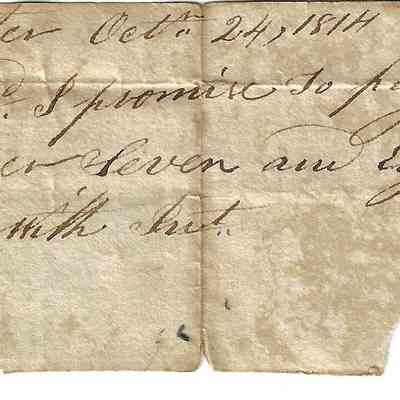 Oct.r 24, 1814
d. I promise to pa
Seven and
with Int.